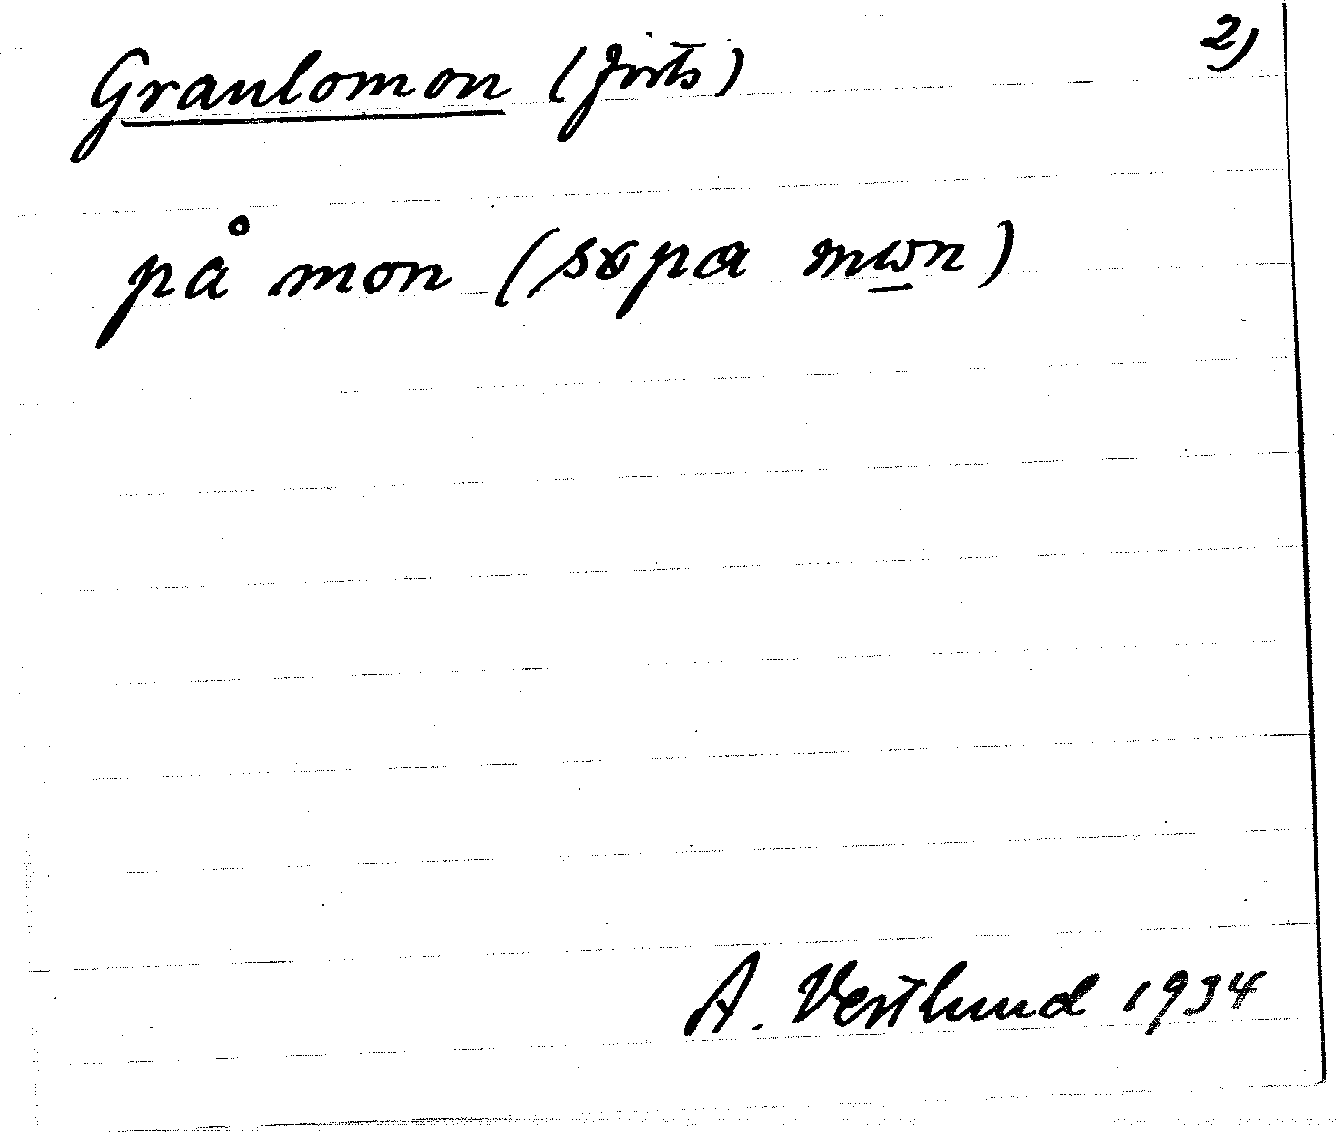 Granlomon (forts) 2)
på mon (sɤpa mɷn)
A. Vestlund 1934